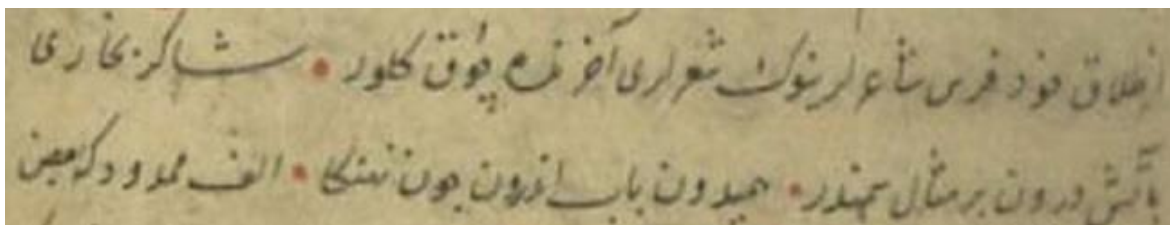 اطلاق خود فرس شاعرلرینوك شعرلری آخرنده چوق كلور • شاكر بخاری
بآتش درون بر مثال سمندر • همیدون باب اندرون چون نهنكا • الف ممدود كه بعض